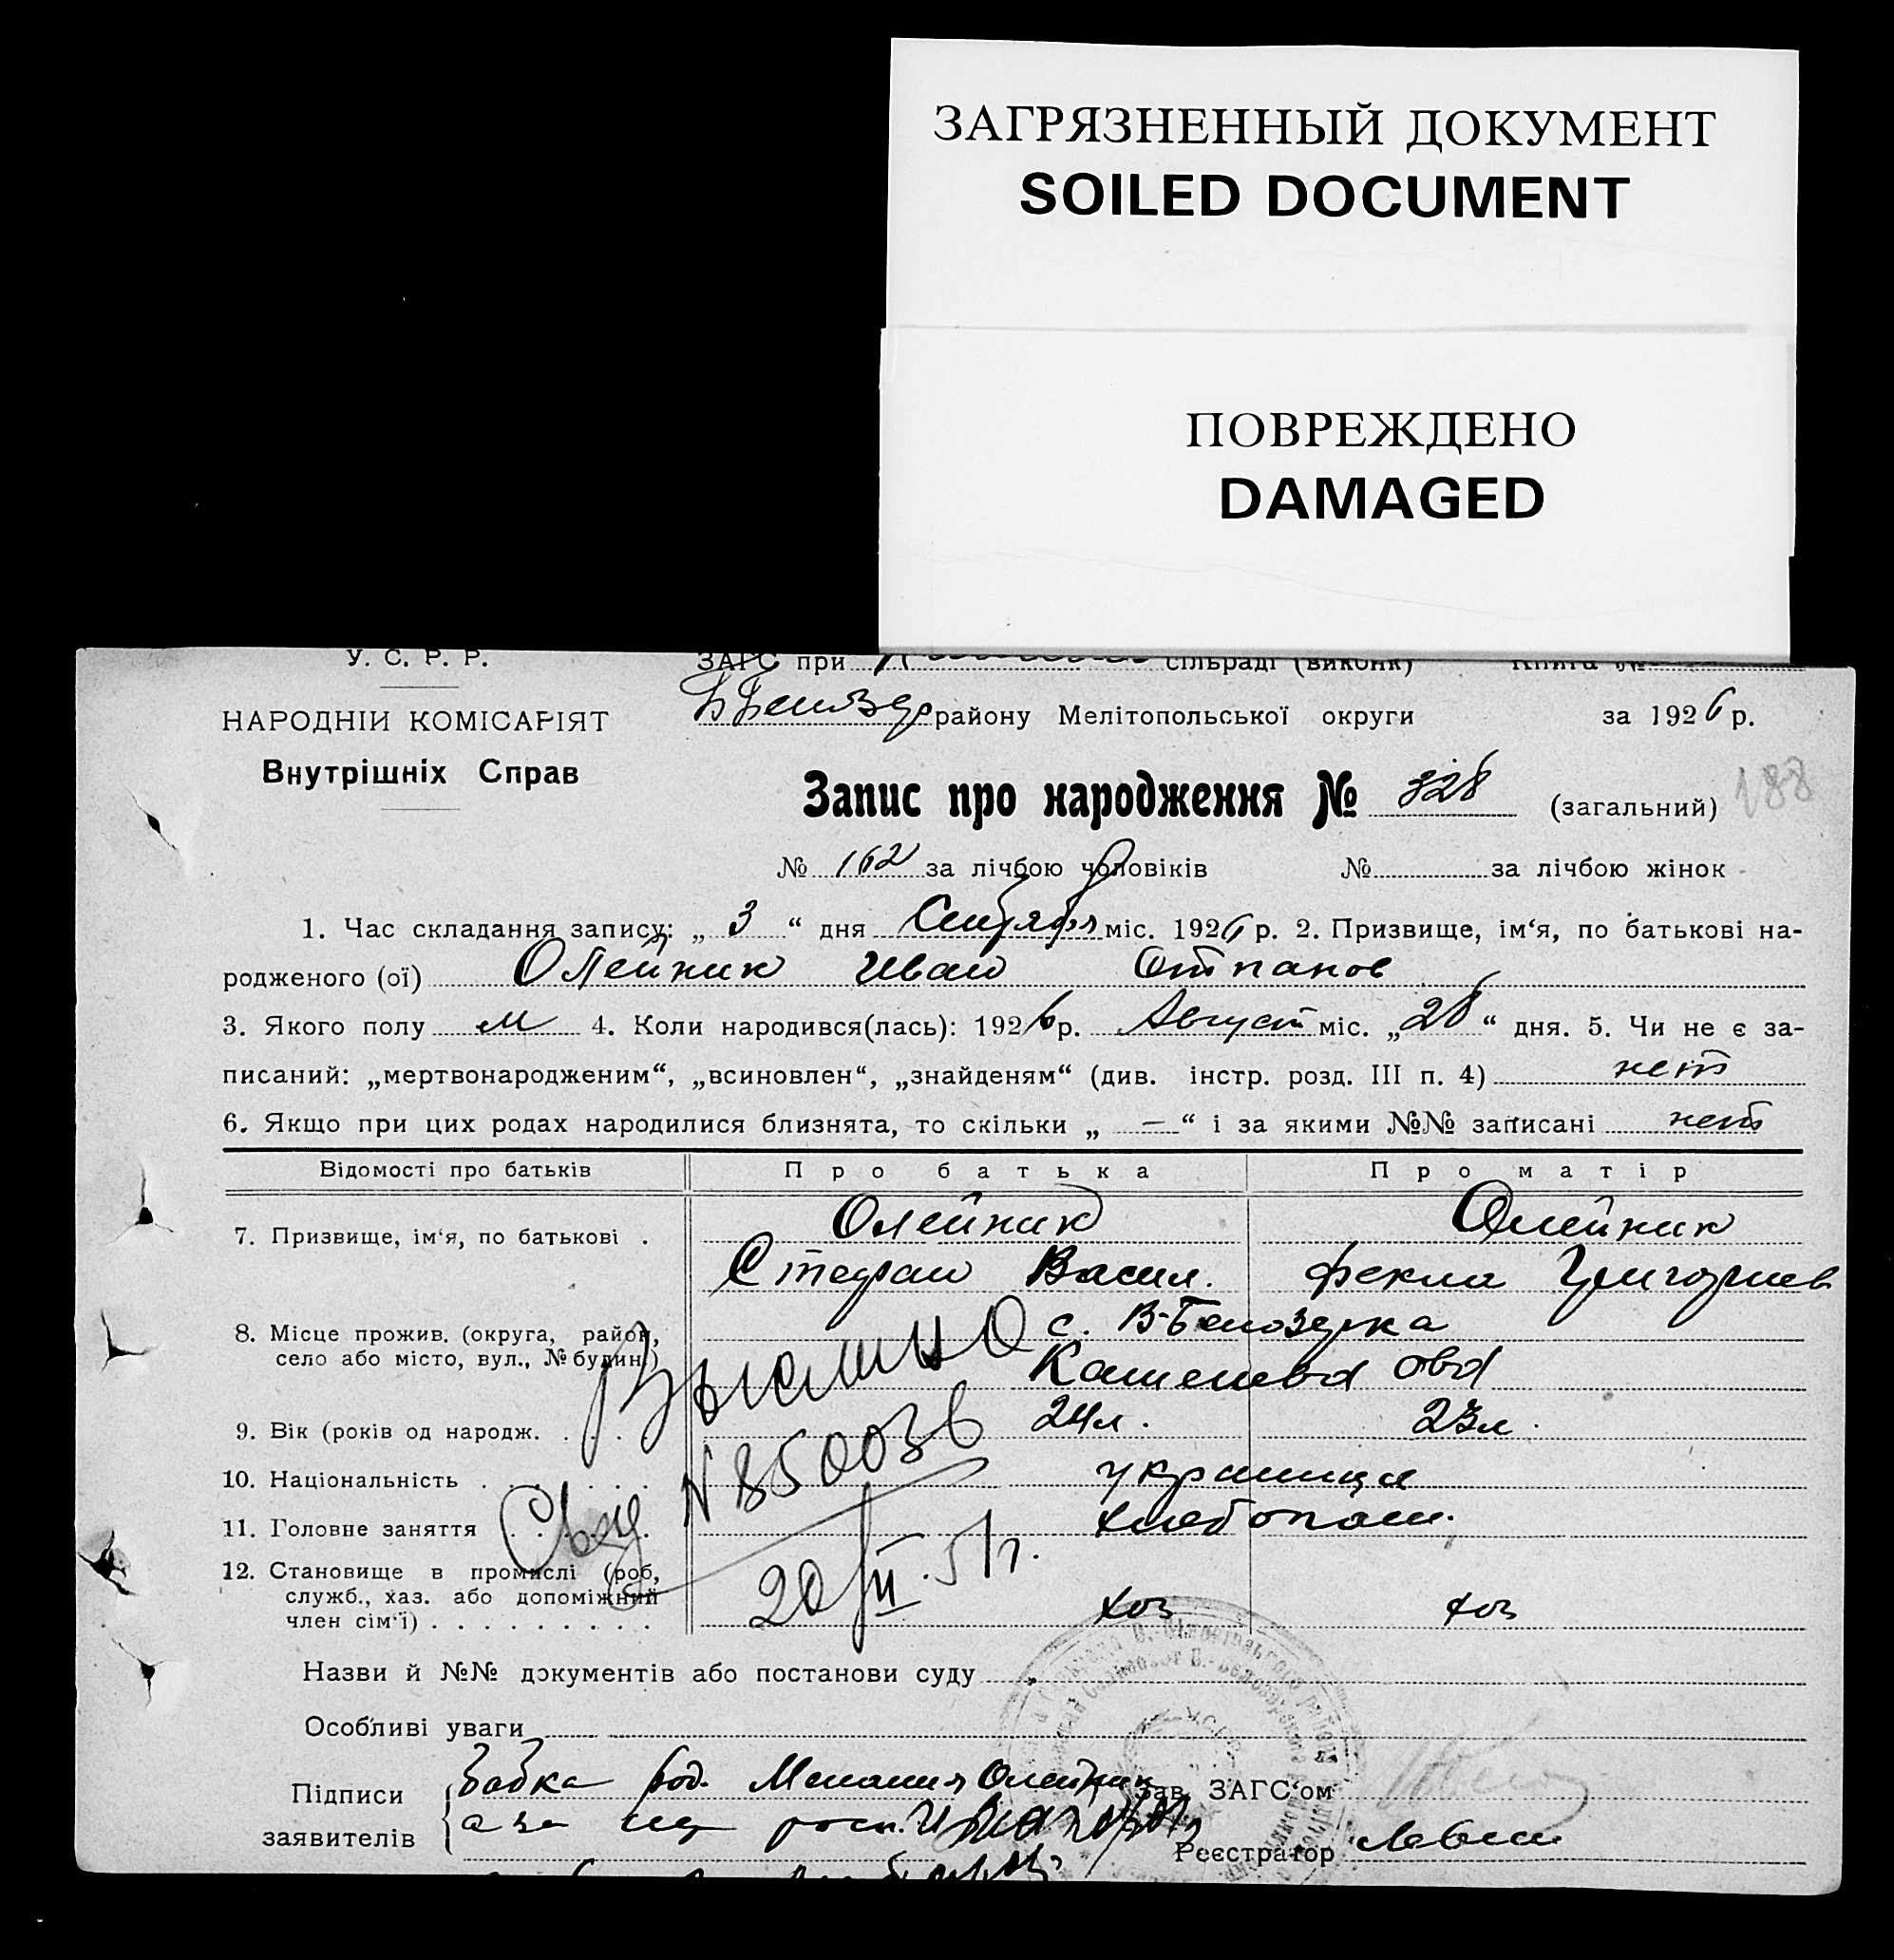 ЗАГРЯЗНЕННЫЙ ДОКУМЕНТ
SOILED DOCUMENT
ПОВРЕЖДЕНО
DAMAGED
У. С. Р. Р.
ЗАГС при сільраді (виконк) Книга №
НАРОДНІЙ КОМІСАРІЯТ
району Мелітопольської округи за 1926 р.
Внутрішніх Справ
Запис про народження № 328 (загальний) 188
№ 162 за лічбою чоловіків № за лічбою жінок
1. Час складання запису: „ 3 “ дня міс. 1926 р. 2. Призвище, ім‘я, по батькові на-
родженого (ої) Олейник Иван
3. Якого полу м 4. Коли народився(лась): 1926 р. Август міс. „ 28 “ дня. 5. Чи не є за-
писаний: „мертвонародженим“, „всиновлен“, „знайденям“ (див. інстр. розд. III п. 4) нет
6. Якщо при цих родах народилися близнята, то скільки „ — “ і за якими №№ записані нет
Відомості про батьків Про батька Про матір
7. Призвище, ім‘я, по батькові . Олейник Олейник
Стефан Васил. Фекла Григориев
8. Місце прожив. (округа, район, с. В-Белозерка
село або місто, вул., № будин.)
9. Вік (років од народж. . . . . 24л. 23л.
10. Національність . . . . . . . украинцы
№ 850036
11. Головне заняття . . . . . . хлебопаш.
Свид
12. Становище в промислі (роб,
служб., хаз. або допоміжний
член сім‘ї) . . . . . . . . . хоз хоз
20/II.51г.
Назви й №№ документів або постанови суду
Особливі уваги
Підписи бабка Мелания Олейник Зав. ЗАГС‘ом
заявителів а за
Реєстратор